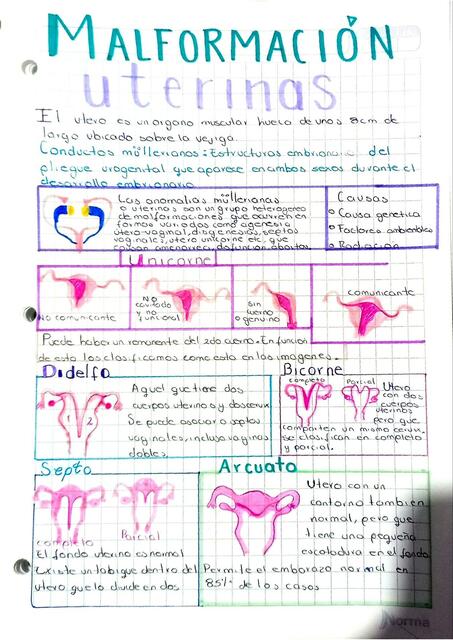 MALFORMACIÓN
uterinas
El utero es un organo muscular hueco de unos 8cm de
largo ubicado sobre la vejiga.
Conductos müllerianos: Estructuras embrionarias del
pliegue urogenital que aparece en ambos sexos durante el
desarrollo embrionario
Las anomalias müllerianas
o uterinas son un grupo heterogeneo
de malformaciones que ocurren en
formas variadas como agenesia
utero vaginal, disgenesias, septos
vaginales, utero unicorne etc, que
causan amenorrea, disfuncion, abortos.
Causas
Causa genetica
Factores ambientales
Radiación
Unicorne
No comunicante
No cavitado
y no
funcional
Sin
cuerno
o genuino
comunicante
Puede haber un remanente del 2do cuerno. En funcion
de esto los clasificamos como esta en las imagenes.
Didelfo
1 2
Aquel que tiene dos
cuerpos uterinos y dos cervix.
Se puede asociar a septos
vaginales, incluso vaginas
dobles.
Bicorne
completo Parcial
Utero
con dos
cuerpos
uterinos
pero que
comparten un mismo cervix.
Se clasifican en completo
y parcial.
Septo
completo Parcial
El fondo uterino es normal
Existe un tabique dentro del
utero que lo divide en dos
Arcuato
Utero con un
contorno tambien
normal, pero que
tiene una pequeña
escotadura en el fondo
Permite el embarazo normal en
85% de los casos
Norma